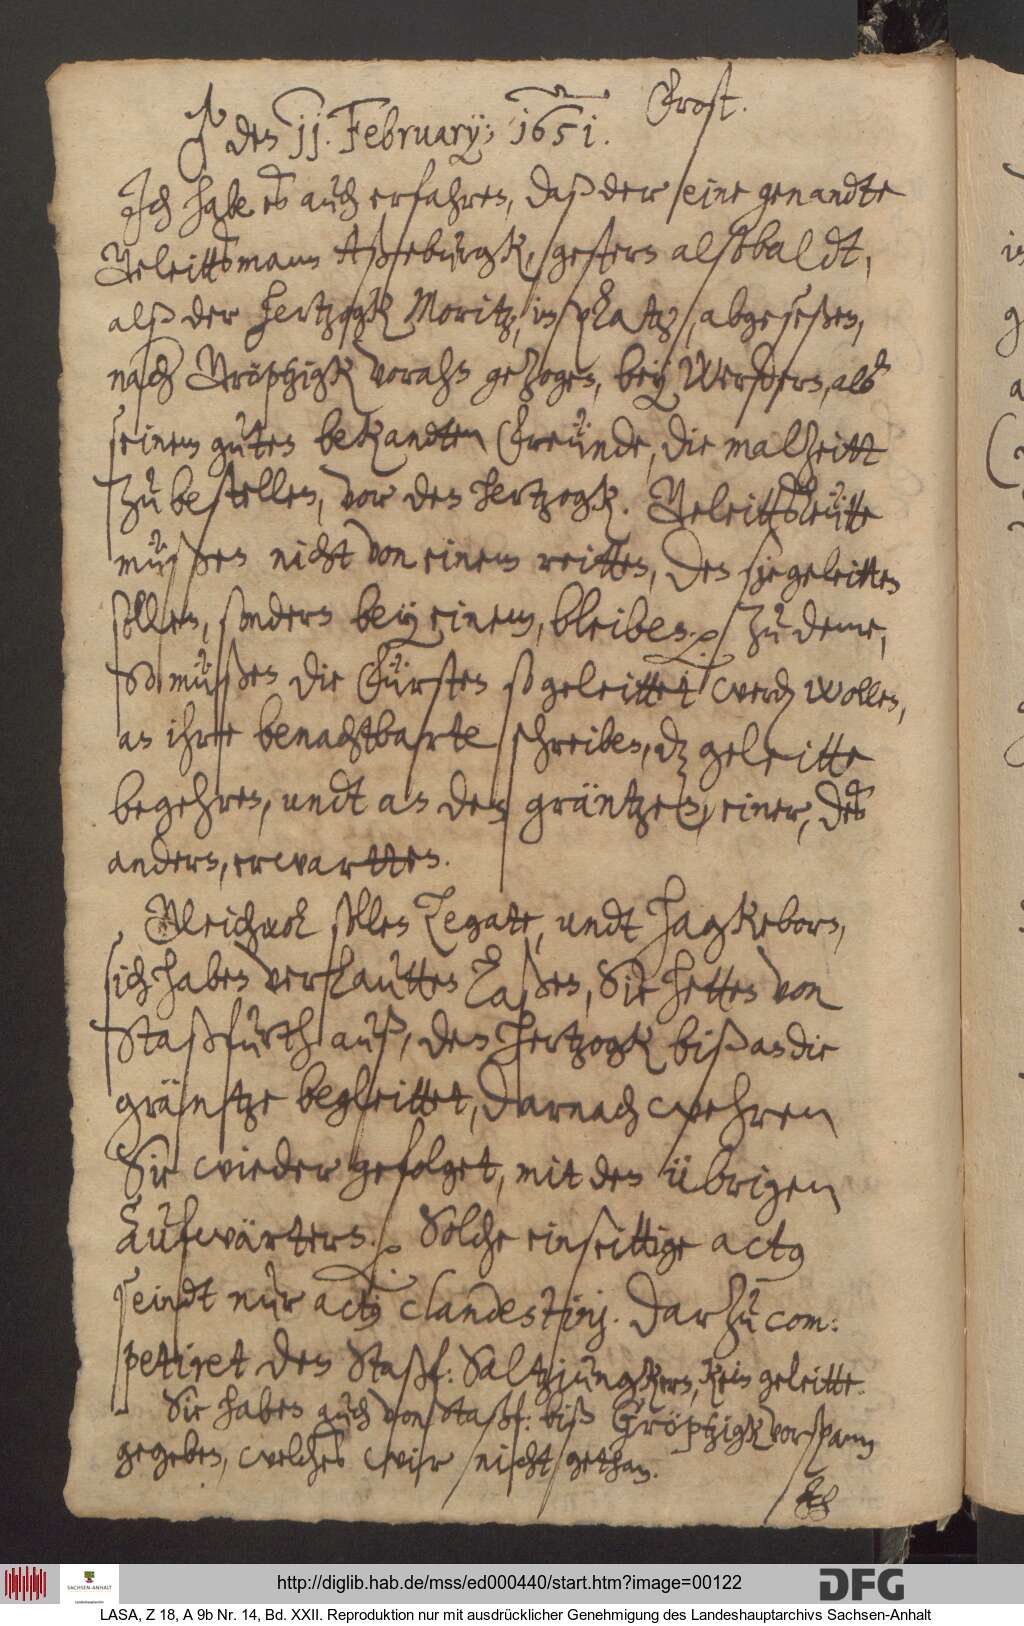 ♂ den 11. February: 1651. Frost.
Ich habe es auch erfahren, daß der eine genandte
Geleittsmann Aßeburgk, gestern alsobaldt,
alß der Hertzogk Moritz, in Platz, abgeseßen,
nach Gröptzigk vorahn gezogen, bey Werdern, als
seinem guten bekandten Freünde, die malzeitt
zu bestellen, vor den Hertzogk. Geleittsleütte
müßen nicht von einem reitten, den sie geleitten
sollen, sondern bey einem, bleiben. Zu deme,
So müßen die Fürsten so geleittet werden wollen,
an ihre benachtbarte schreiben, dz geleitte
begehren, undt an den gräntzen, einer, des
andern, erwartten.
Gleichwol sollen Legate, undt Hagkeborn,
sich haben verlautten laßen, Sie hetten von
Staßfurth auß, den Hertzogk biß an die
gräntze begleittet, darnach wehren
Sie wieder gefolget, mit den übrigen
Aufwärtern. Solche einseittige actus
seindt nur actus clandestinj. Darzu com:
petiret den Staßf: Saltzjungkern, kein geleitte.
Sie haben auch von Staßf: biß Gröptzigk vorspann
gegeben, welches wir nicht gethan.
http://diglib.hab.de/mss/ed000440/start.htm?image=00122
DFG
SACHSEN-ANHALT
LASA, Z 18, A 9b Nr. 14, Bd. XXII. Reproduktion nur mit ausdrücklicher Genehmigung des Landeshauptarchivs Sachsen-Anhalt